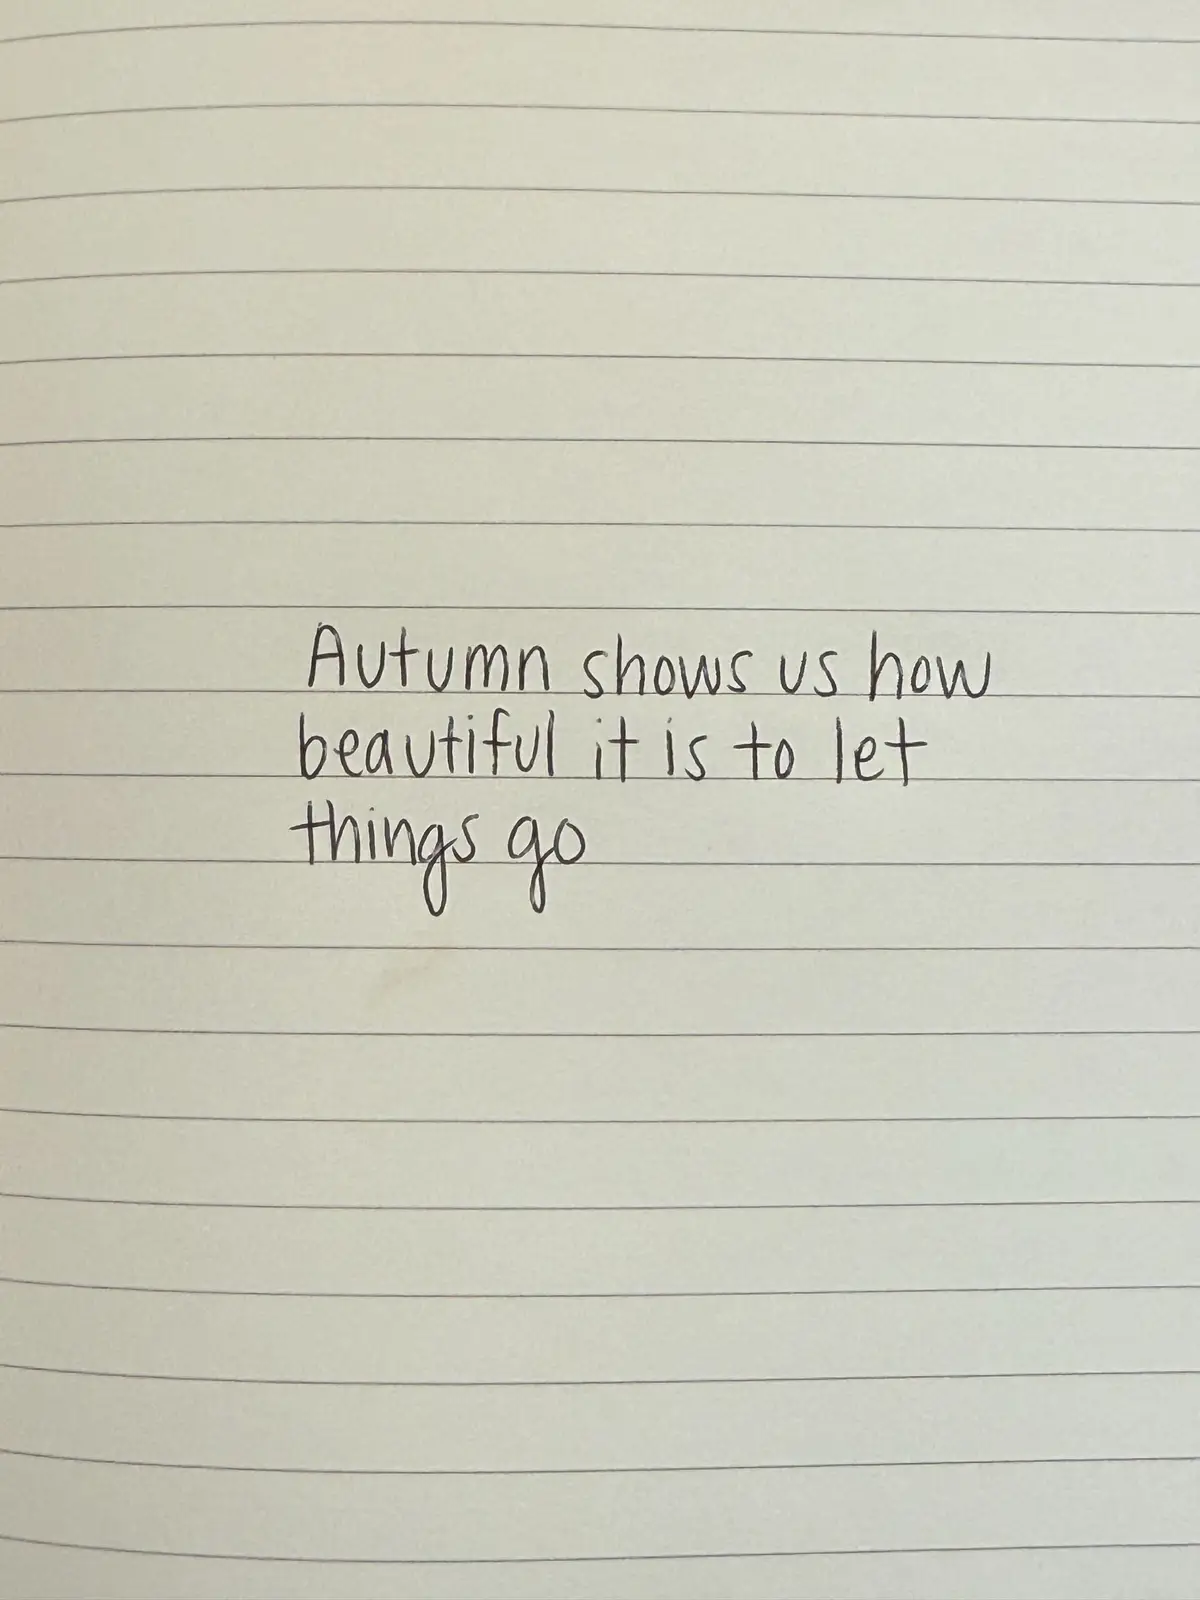 Autumn shows us how
beautiful it is to let
things go